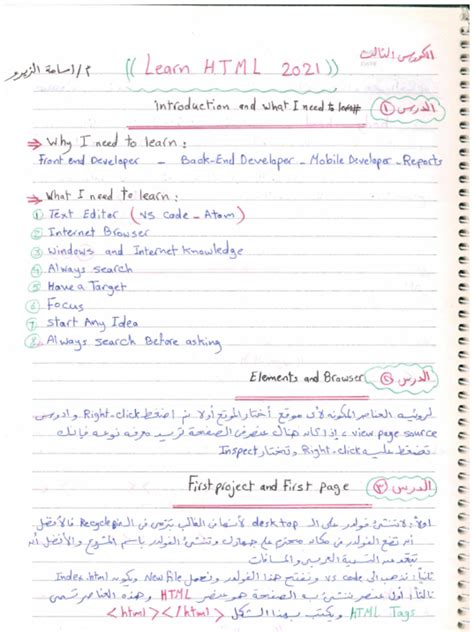 الكورس الثالث
(( Learn HTML 2021 ))
م/اسامة الزيرو
الدرس ①
Introduction and what I need to learn
⇒ Why I need to learn :
Front end Developer - Back-End Developer - Mobile Developer - Reports
⇒ What I need to learn :
① Text Editor ( VS Code - Atom )
② Internet Browser
③ Windows and Internet Knowledge
④ Always search
⑤ Have a Target
⑥ Focus
⑦ Start Any Idea
⑧ Always search Before asking
الدرس ② Elements and Browser
لرؤية العناصر المكونه لأى موقع أختار الموقع أولا ثم اضغط Right-click وادوس
view page source ، إذا كان هناك عنصر فى الصفحة تريد معرفه نوعه فإنك
تضغط عليه Right-click وتختار Inspect
الدرس ③ First project and First page
اولا: ننشئ فولدر على الـ desktop لأنها فى الغالب من الـ Recycle فالأفضل
أن تضع الفولدر فى مكان محترم على جهازك وتنشئ الفولدر باسم المشروع والأفضل أن
تبعد عن التسمية العربى والمسافات
ثانيا: نذهب الى vs code ونفتح هذا الفولدر ونعمل New File ويكون Index.html
ثالثا: أول عنصر ننشئ ب الصفحة هو عنصر HTML وهذه العناصر تسمى
HTML Tags ويكتب بهذا الشكل <html></html>